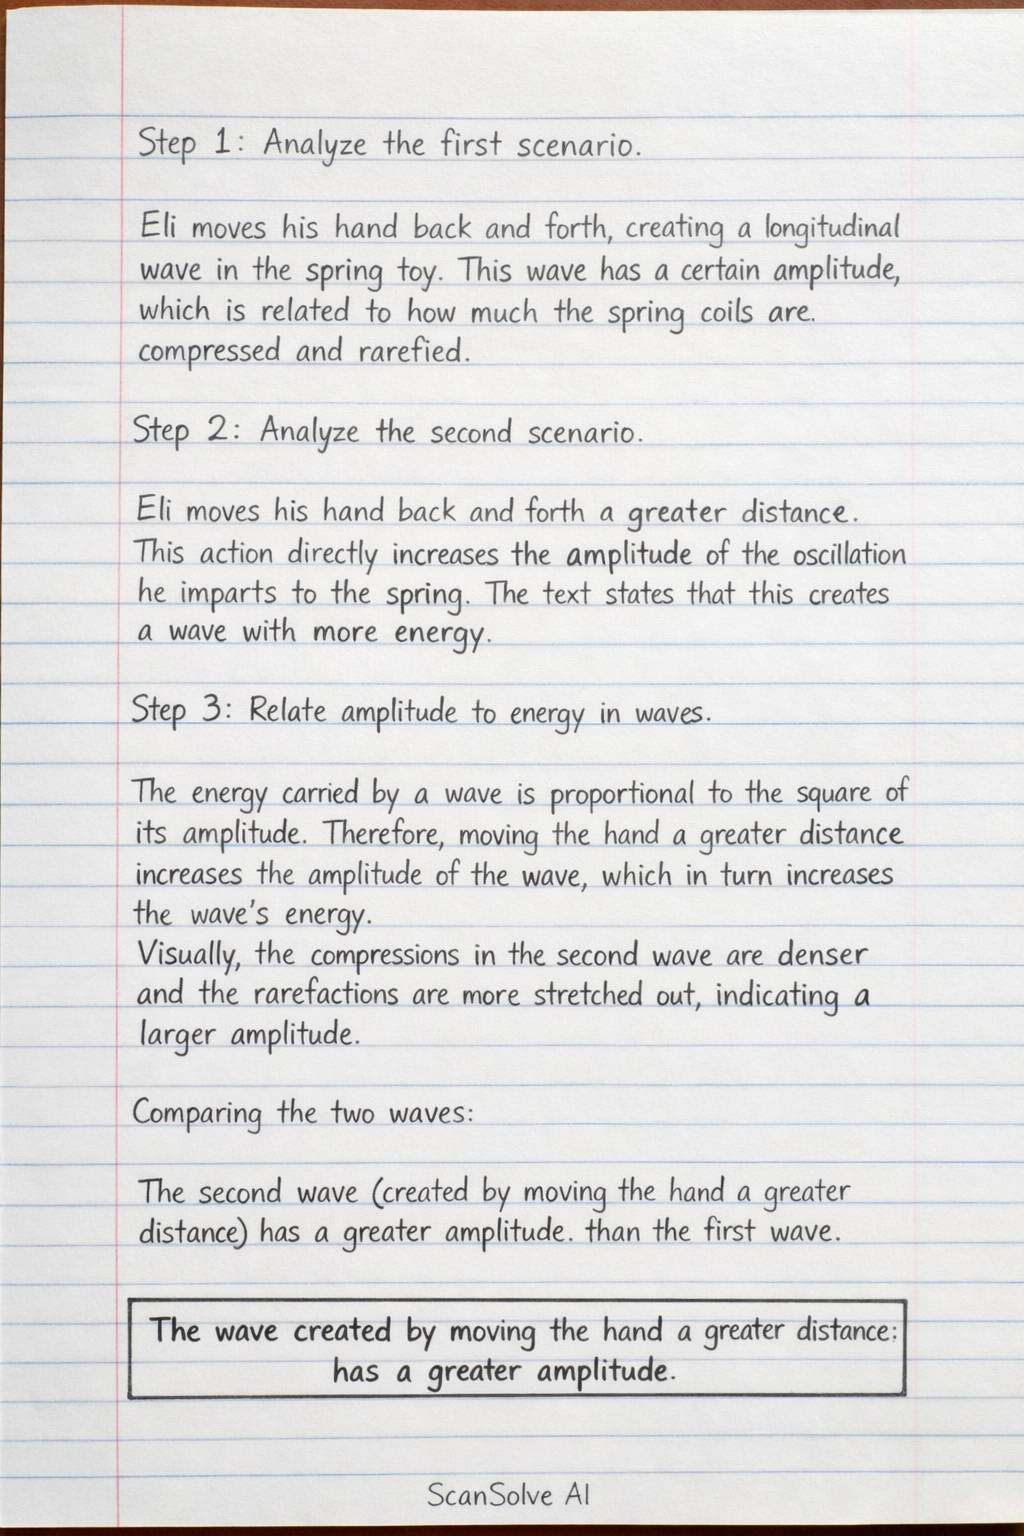 Step 1: Analyze the first scenario.
Eli moves his hand back and forth, creating a longitudinal
wave in the spring toy. This wave has a certain amplitude,
which is related to how much the spring coils are.
compressed and rarefied.
Step 2: Analyze the second scenario.
Eli moves his hand back and forth a greater distance.
This action directly increases the amplitude of the oscillation
he imparts to the spring. The text states that this creates
a wave with more energy.
Step 3: Relate amplitude to energy in waves.
The energy carried by a wave is proportional to the square of
its amplitude. Therefore, moving the hand a greater distance
increases the amplitude of the wave, which in turn increases
the wave's energy.
Visually, the compressions in the second wave are denser
and the rarefactions are more stretched out, indicating a
larger amplitude.
Comparing the two waves:
The second wave (created by moving the hand a greater
distance) has a greater amplitude. than the first wave.
The wave created by moving the hand a greater distance:
has a greater amplitude.
ScanSolve AI